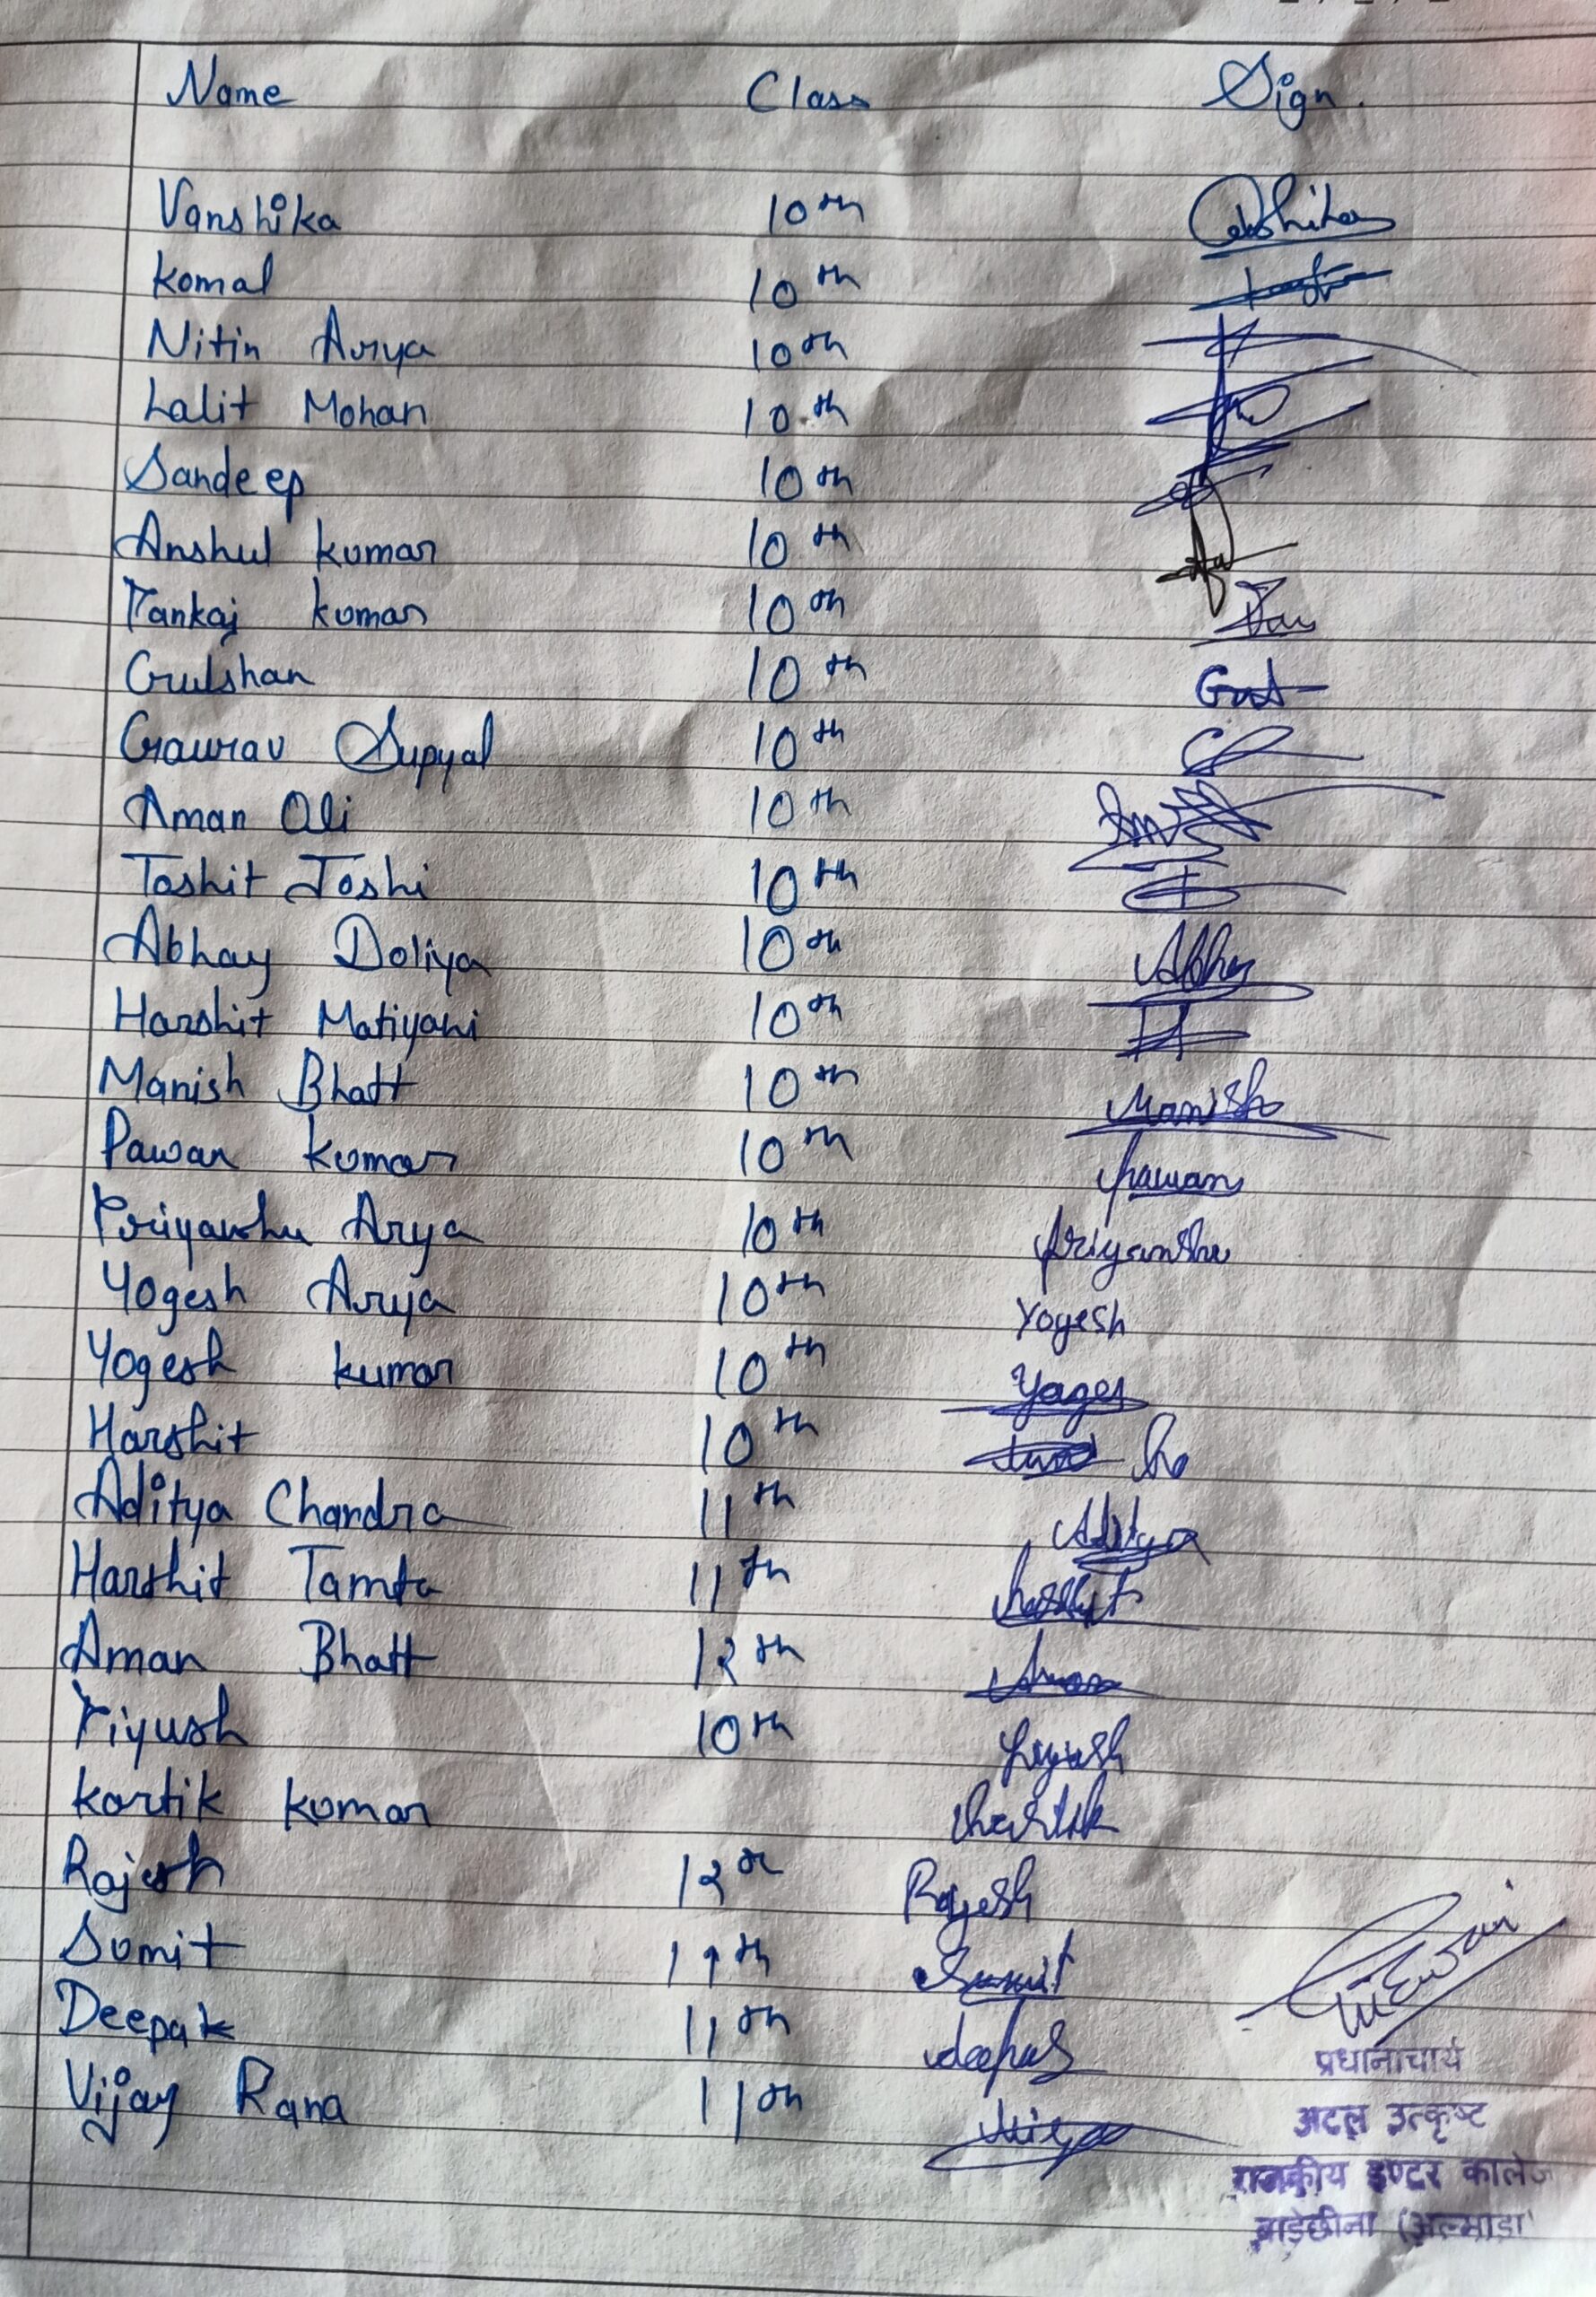 Name Class Sign.
Vanshika 10th
Komal 10th
Nitin Arya 10th
Lalit Mohan 10th
Sandeep 10th
Anshul kumar 10th
Pankaj kumar 10th
Gulshan 10th
Gaurav Supyal 10th
Aman Ali 10th
Toshit Joshi 10th
Abhay Doliya 10th Abhay
Harshit Matiyani 10th
Manish Bhatt 10th Manish
Pawan kumar 10th Pawan
Priyanshu Arya 10th Priyanshu
Yogesh Arya 10th Yogesh
Yogesh kumar 10th
Harshit 10th
Aditya Chandra 11th Aditya
Harshit Tamta 11th Harshit
Aman Bhatt 12th Aman
Piyush 10th Piyush
Kartik kumar Kartik
Rajesh 12th Rajesh
Sumit 11th Sumit
Deepak 11th
Vijay Rana 11th
प्रधानाचार्य
अटल उत्कृष्ट
राजकीय इण्टर कालेज
बाड़ेछीना (अल्मोड़ा)